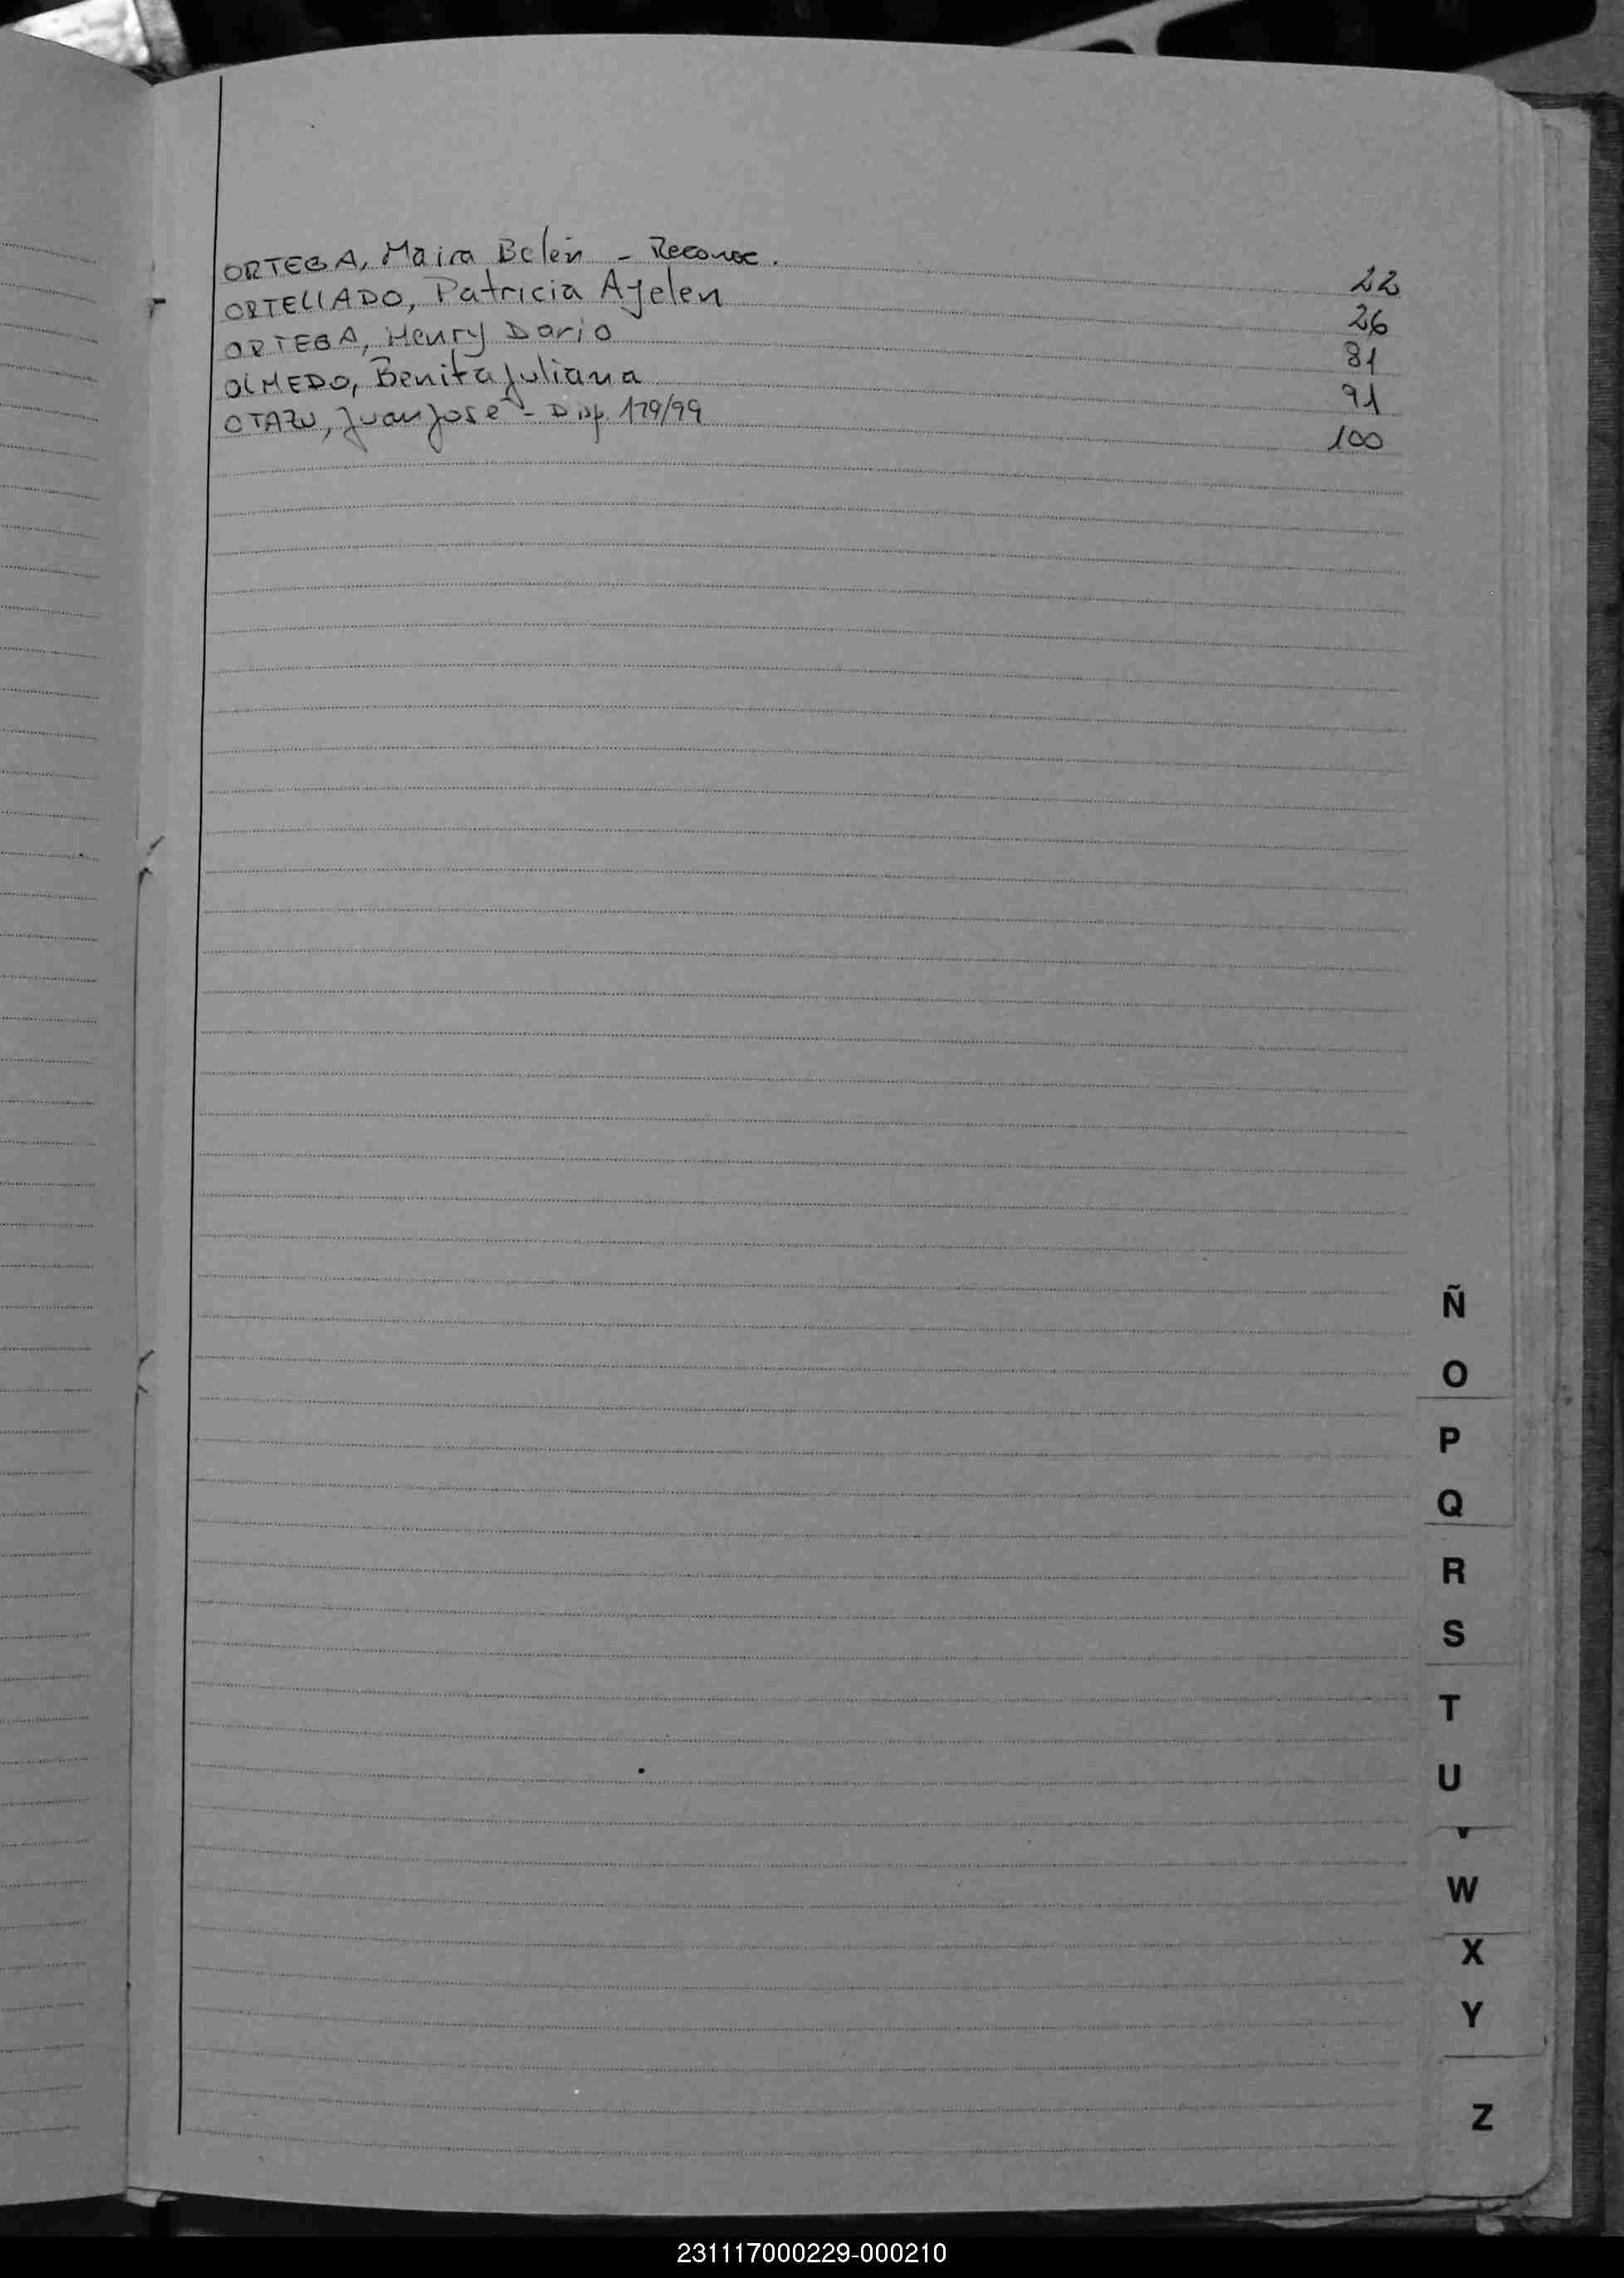 ORTEGA, Maira Belén - Reconoc. 22
ORTELLADO, Patricia Ayelen 26
ORTEGA, Henry Dario 81
OLMEDO, Benita Juliana 91
OTAZU, Juan José - Disp. 179/99 100
Ñ
O
P
Q
R
S
T
U
V
W
X
Y
Z
231117000229-000210